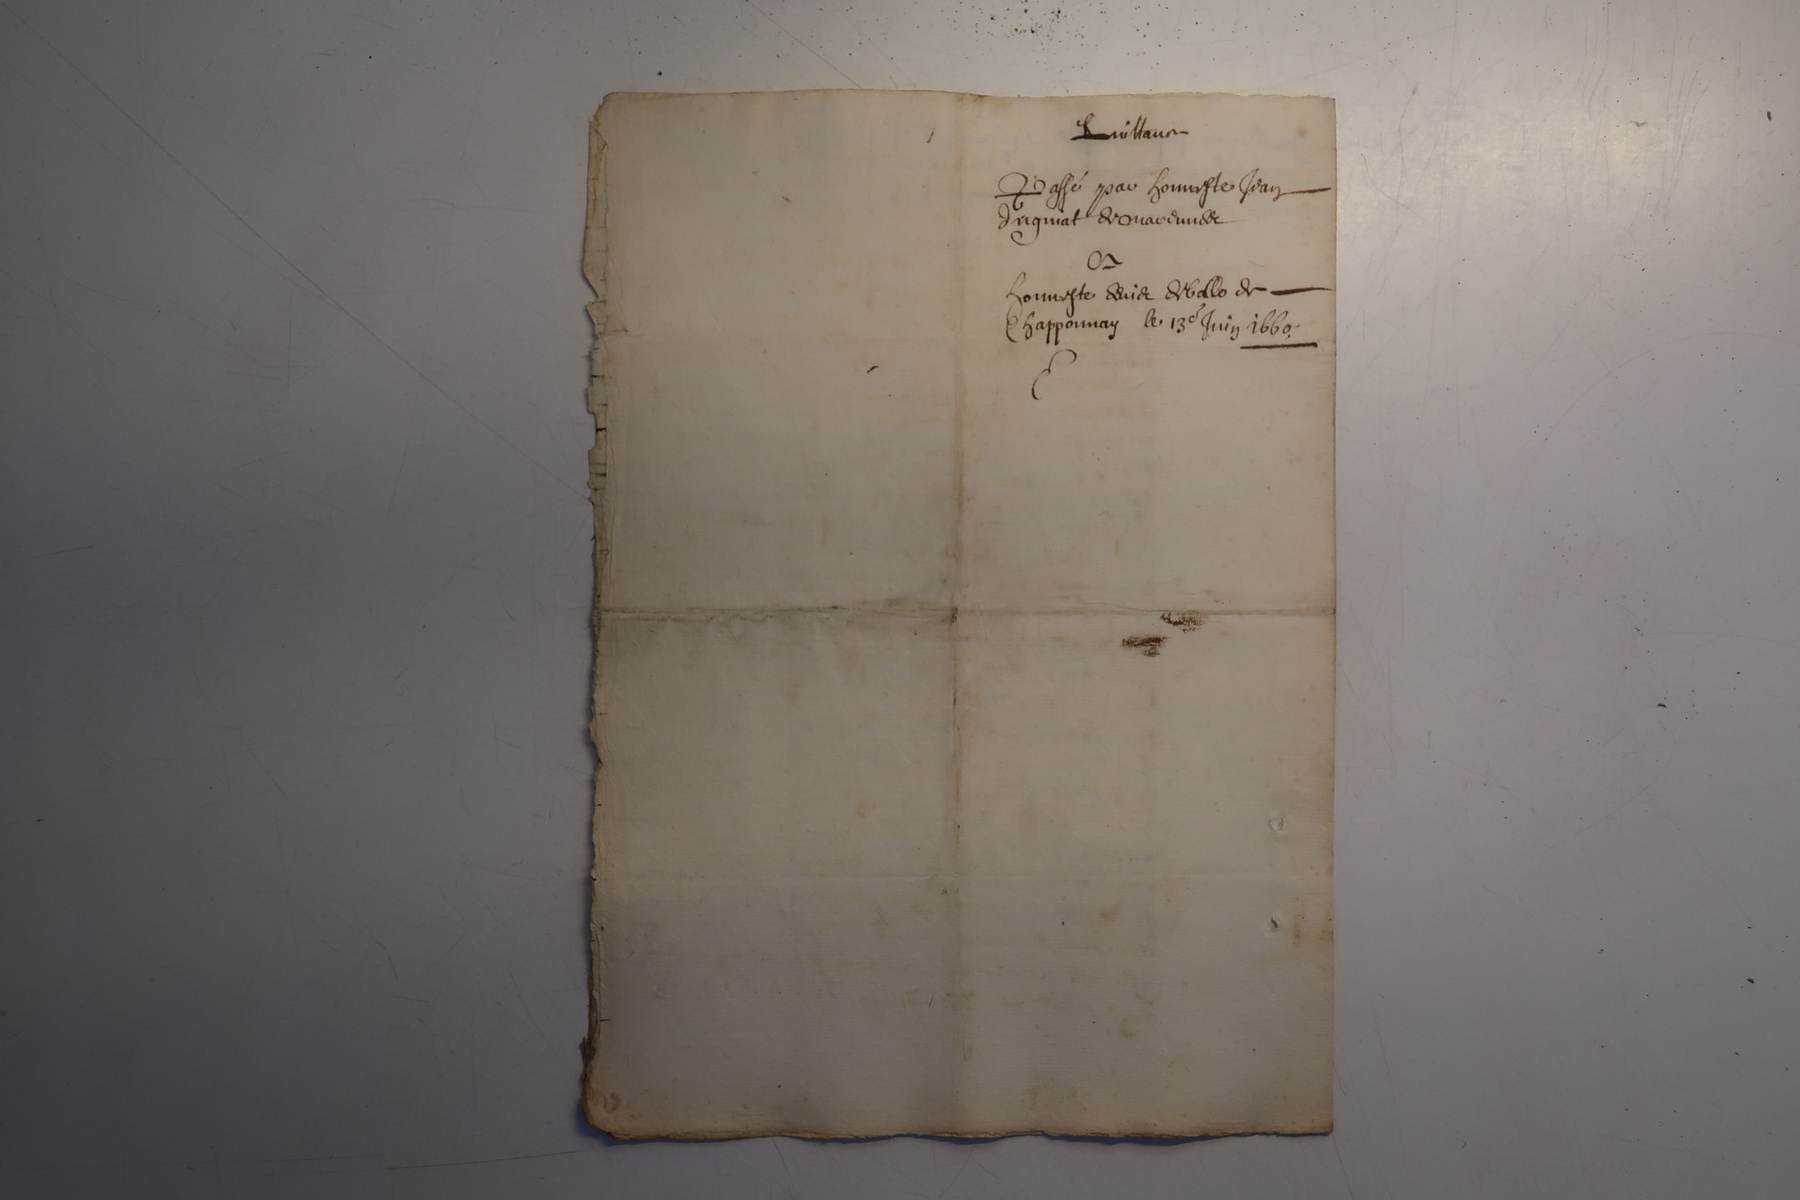 Quittance
Passé par honneste Jean
Drignat de marennde
A
honneste de
Chapponnay le 13e Juin 1660.